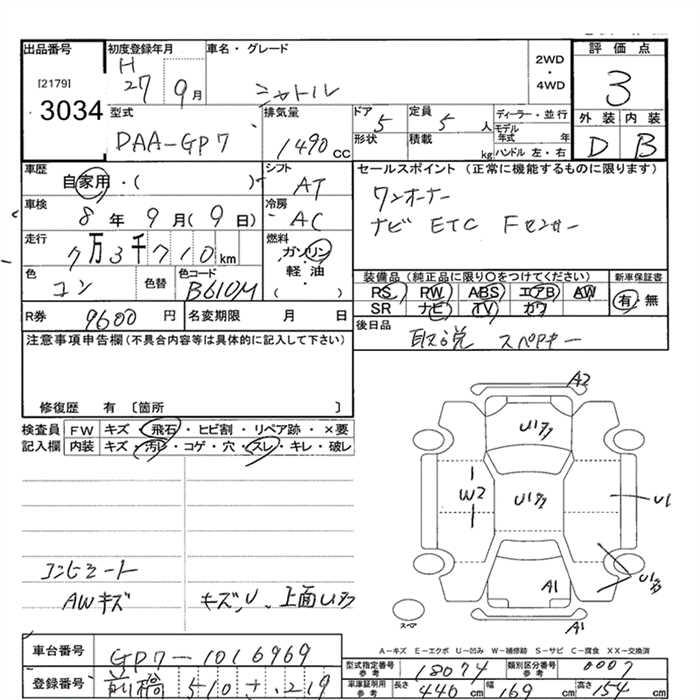 出品番号
[2179]
3034
初度登録年月
H
27 9月
車名・グレード
シャトル
2WD
・
4WD
評価点
3
外装 内装
D B
型式
DAA-GP7
排気量
1490 CC
ドア 5
形状
定員 5 人
積載 kg
ディーラー・並行
モデル年式 年
ハンドル 左・右
車歴
自家用・( )
シフト
AT
車検
8年 9月(9日)
冷房
AC
走行
7万3千710km
燃料
ガソリン
軽油
( )
色
コン
色替
色コード
B610M
R券 9600 円
名変期限 月 日
セールスポイント (正常に機能するものに限ります)
ワンオーナー
ナビ ETC Fセンサー
装備品(純正品に限り○をつけてください)
RS RW ABS エアB AW
SR ナビ TV カワ
新車保証書
有・無
後日品
取説 スペアキー
注意事項申告欄(不具合内容等は具体的に記入して下さい)
修復歴 有〔箇所 〕
検査員 FW キズ・飛石・ヒビ割・リペア跡・×要
記入欄 内装 キズ・汚レ・コゲ・穴・スレ・キレ・破レ
コンビシート
AWキズ
キズ,U、上面U
A2
W2
U1
A1
A1
スペア
A-キズ E-エクボ U-凹み W-補修跡 S-サビ C-腐食 XX-交換済
車台番号
GP7-1016969
登録番号
前橋 510 219
型式指定番号
参考
18074
類別区分番号
参考
0007
車庫証明用
参考
長さ 440 cm
幅 169 cm
高さ 154 cm